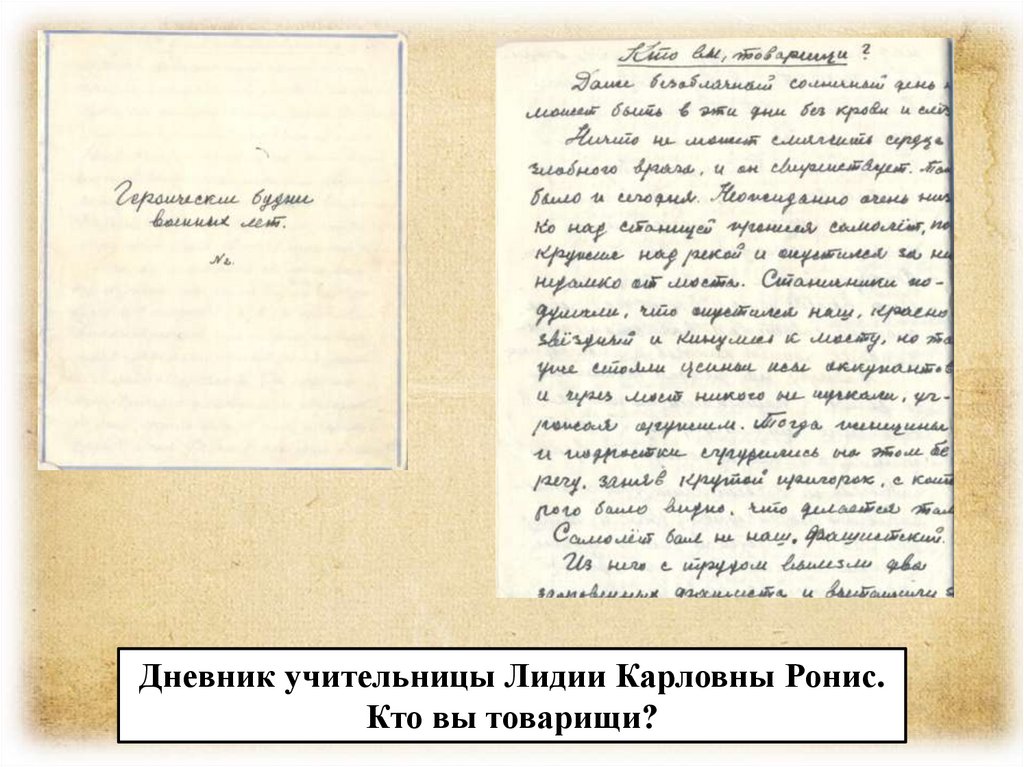 Героические будни
военных лет.
№2.
Кто вы, товарищи?
Даже безоблачный солнечный день н
может быть в эти дни без крови и слёз
Ничто не может смягчить сердце
злобного врага, и он свирепствует. Так
было и сегодня. Неожиданно очень низ
ко над станицей пронёсся самолёт, по
кружил над рекой и опустился за не
недалко от моста. Станичники по-
думали, что опустился наш, красно
звёздный и кинулись к мосту, но та
уже стояли цепные псы оккупантов
и через мост никого не пускали, уг-
рожая оружием. Тогда женщины
и подростки сгрудились на этом бе
регу, заняв крутой пригорок, с кот
рого было видно, что делается там
Самолёт был не наш. Фашистский.
Из него с трудом вылезли два
фашиста и вытащили
Дневник учительницы Лидии Карловны Ронис.
Кто вы товарищи?